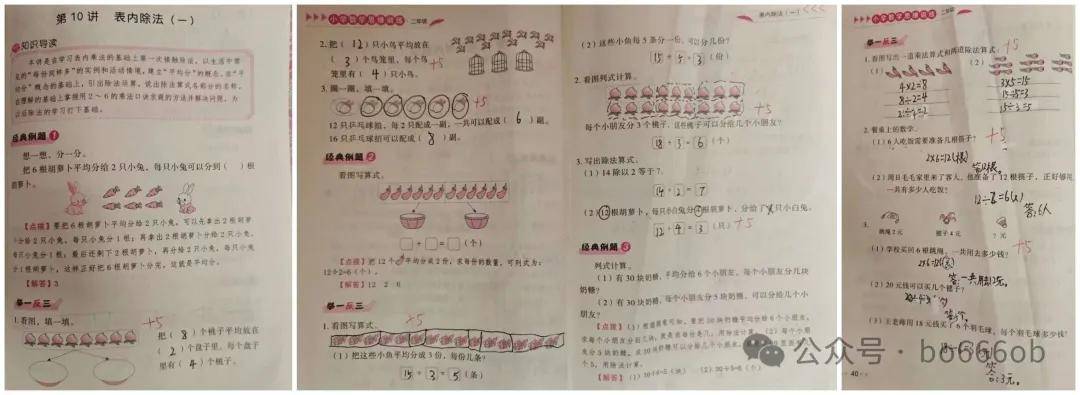 第10讲 表内除法（一）
知识导读
本讲是在学习表内乘法的基础上第一次接触除法，以生活中常
见的“每份同样多”的实例和活动情境，建立“平均分”的概念，在“平
均分”概念的基础上，引出除法运算，说出除法算式各部分的名称，
在理解的基础上掌握用2～6的乘法口诀求商的方法并解决问题，为
以后除法的学习打下基础。
经典例题1
想一想，分一分。
把6根胡萝卜平均分给2只小兔，每只小兔可以分到（ ）根
胡萝卜。
【点拨】要把6根胡萝卜平均分给2只小兔，可以先拿出2根胡萝
卜分给2只小兔，每只小兔分1根；再拿出2根胡萝卜分给2只小兔，
每只小兔分1根；最后还剩下2根胡萝卜，再分给2只小兔，每只小兔
分1根胡萝卜，这样正好把6根胡萝卜分完，这就是平均分。
【解答】3
举一反三
1.看图，填一填。
+5
把（8）个桃子平均放在
（2）个盘子里，每个盘子
里有（4）个桃子。
小学数学思维训练 二年级
2.把（12）只小鸟平均放在
（3）个鸟笼里，每个鸟
笼里有（4）只小鸟。
3.圈一圈，填一填。
+5
12只乒乓球拍，每2只配成一副，一共可以配成（6）副。
16只乒乓球拍可以配成（8）副。
经典例题2
看图写算式。
□÷□=□（个）
【点拨】把12个平均分成2份，求每份的数量，可列式为：
12÷2=6（个）。
【解答】12 2 6
举一反三
1.看图写算式。
+5
（1）把这些小鱼平均分成3份，每份几条？
15÷3=5（条）
表内除法（一）
（2）这些小鱼每5条分一份，可以分几份？
15÷5=3（份）
2.看图列式计算。
每个小朋友分3个桃子，这些桃子可以分给几个小朋友？
18÷3=6（个）
3.写出除法算式。
（1）14除以2等于7。
14÷2=7
（2）12根胡萝卜，每只小白兔分4根胡萝卜，分给了3只小白兔。
12÷4=3（只）
+5
经典例题3
列式计算。
（1）有30块奶糖，平均分给6个小朋友，每个小朋友分几块
奶糖？
（2）有30块奶糖，每个小朋友分5块奶糖，可以分给几个小
朋友？
【解答】（1）30÷6=5（块） （2）30÷5=6（个）
小学数学思维训练 二年级
举一反三
+5
1.看图写出一道乘法算式和两道除法算式。
（1）
（2）
4×2=8
8÷2=4
3×5=15
15÷5=3
15÷3=5
2.餐桌上的数学。
+5
（1）6人吃饭需要准备几根筷子？
2×6=12(根)
（2）周日毛毛家里来了客人，他准备了12根筷子，正好够用，
一共有多少人吃饭？
12÷2=6(人)
答:6人
3.
跳绳2元
毽子4元
?元
（1）学校买回6根跳绳，一共用去多少钱？
+5
（2）20元钱可以买几个毽子？
（3）王老师用18元钱买了6个羽毛球，每个羽毛球多少钱？
40
公众号·bo666ob